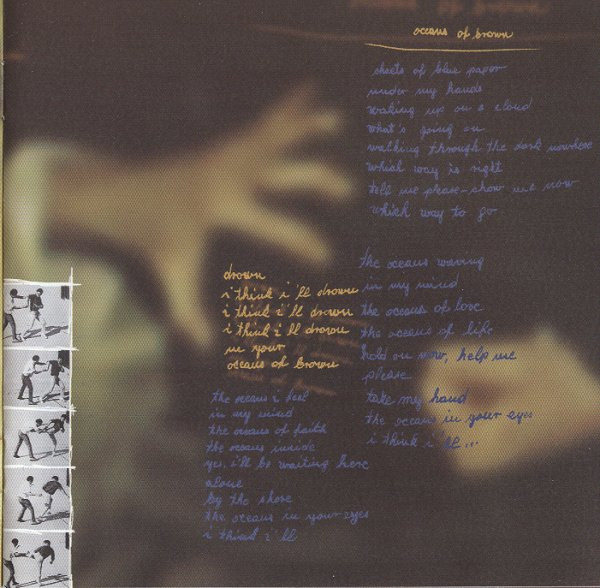 oceans of brown
sheets of blue paper
under my hands
waking up on a cloud
what's going on
walking through the dark nowhere
which way is right
tell me please - show me now
which way to go
drown
i think i'll drown
i think i'll drown
i think i'll drown
in your
oceans of brown
the oceans i feel
in my mind
the oceans of faith
the oceans inside
yes, i'll be waiting here
alone
by the shore
the oceans in your eyes
i think i'll
the oceans waving
in my mind
the oceans of love
the oceans of life
hold on now, help me
please
take my hand
the oceans in your eyes
i think i'll...